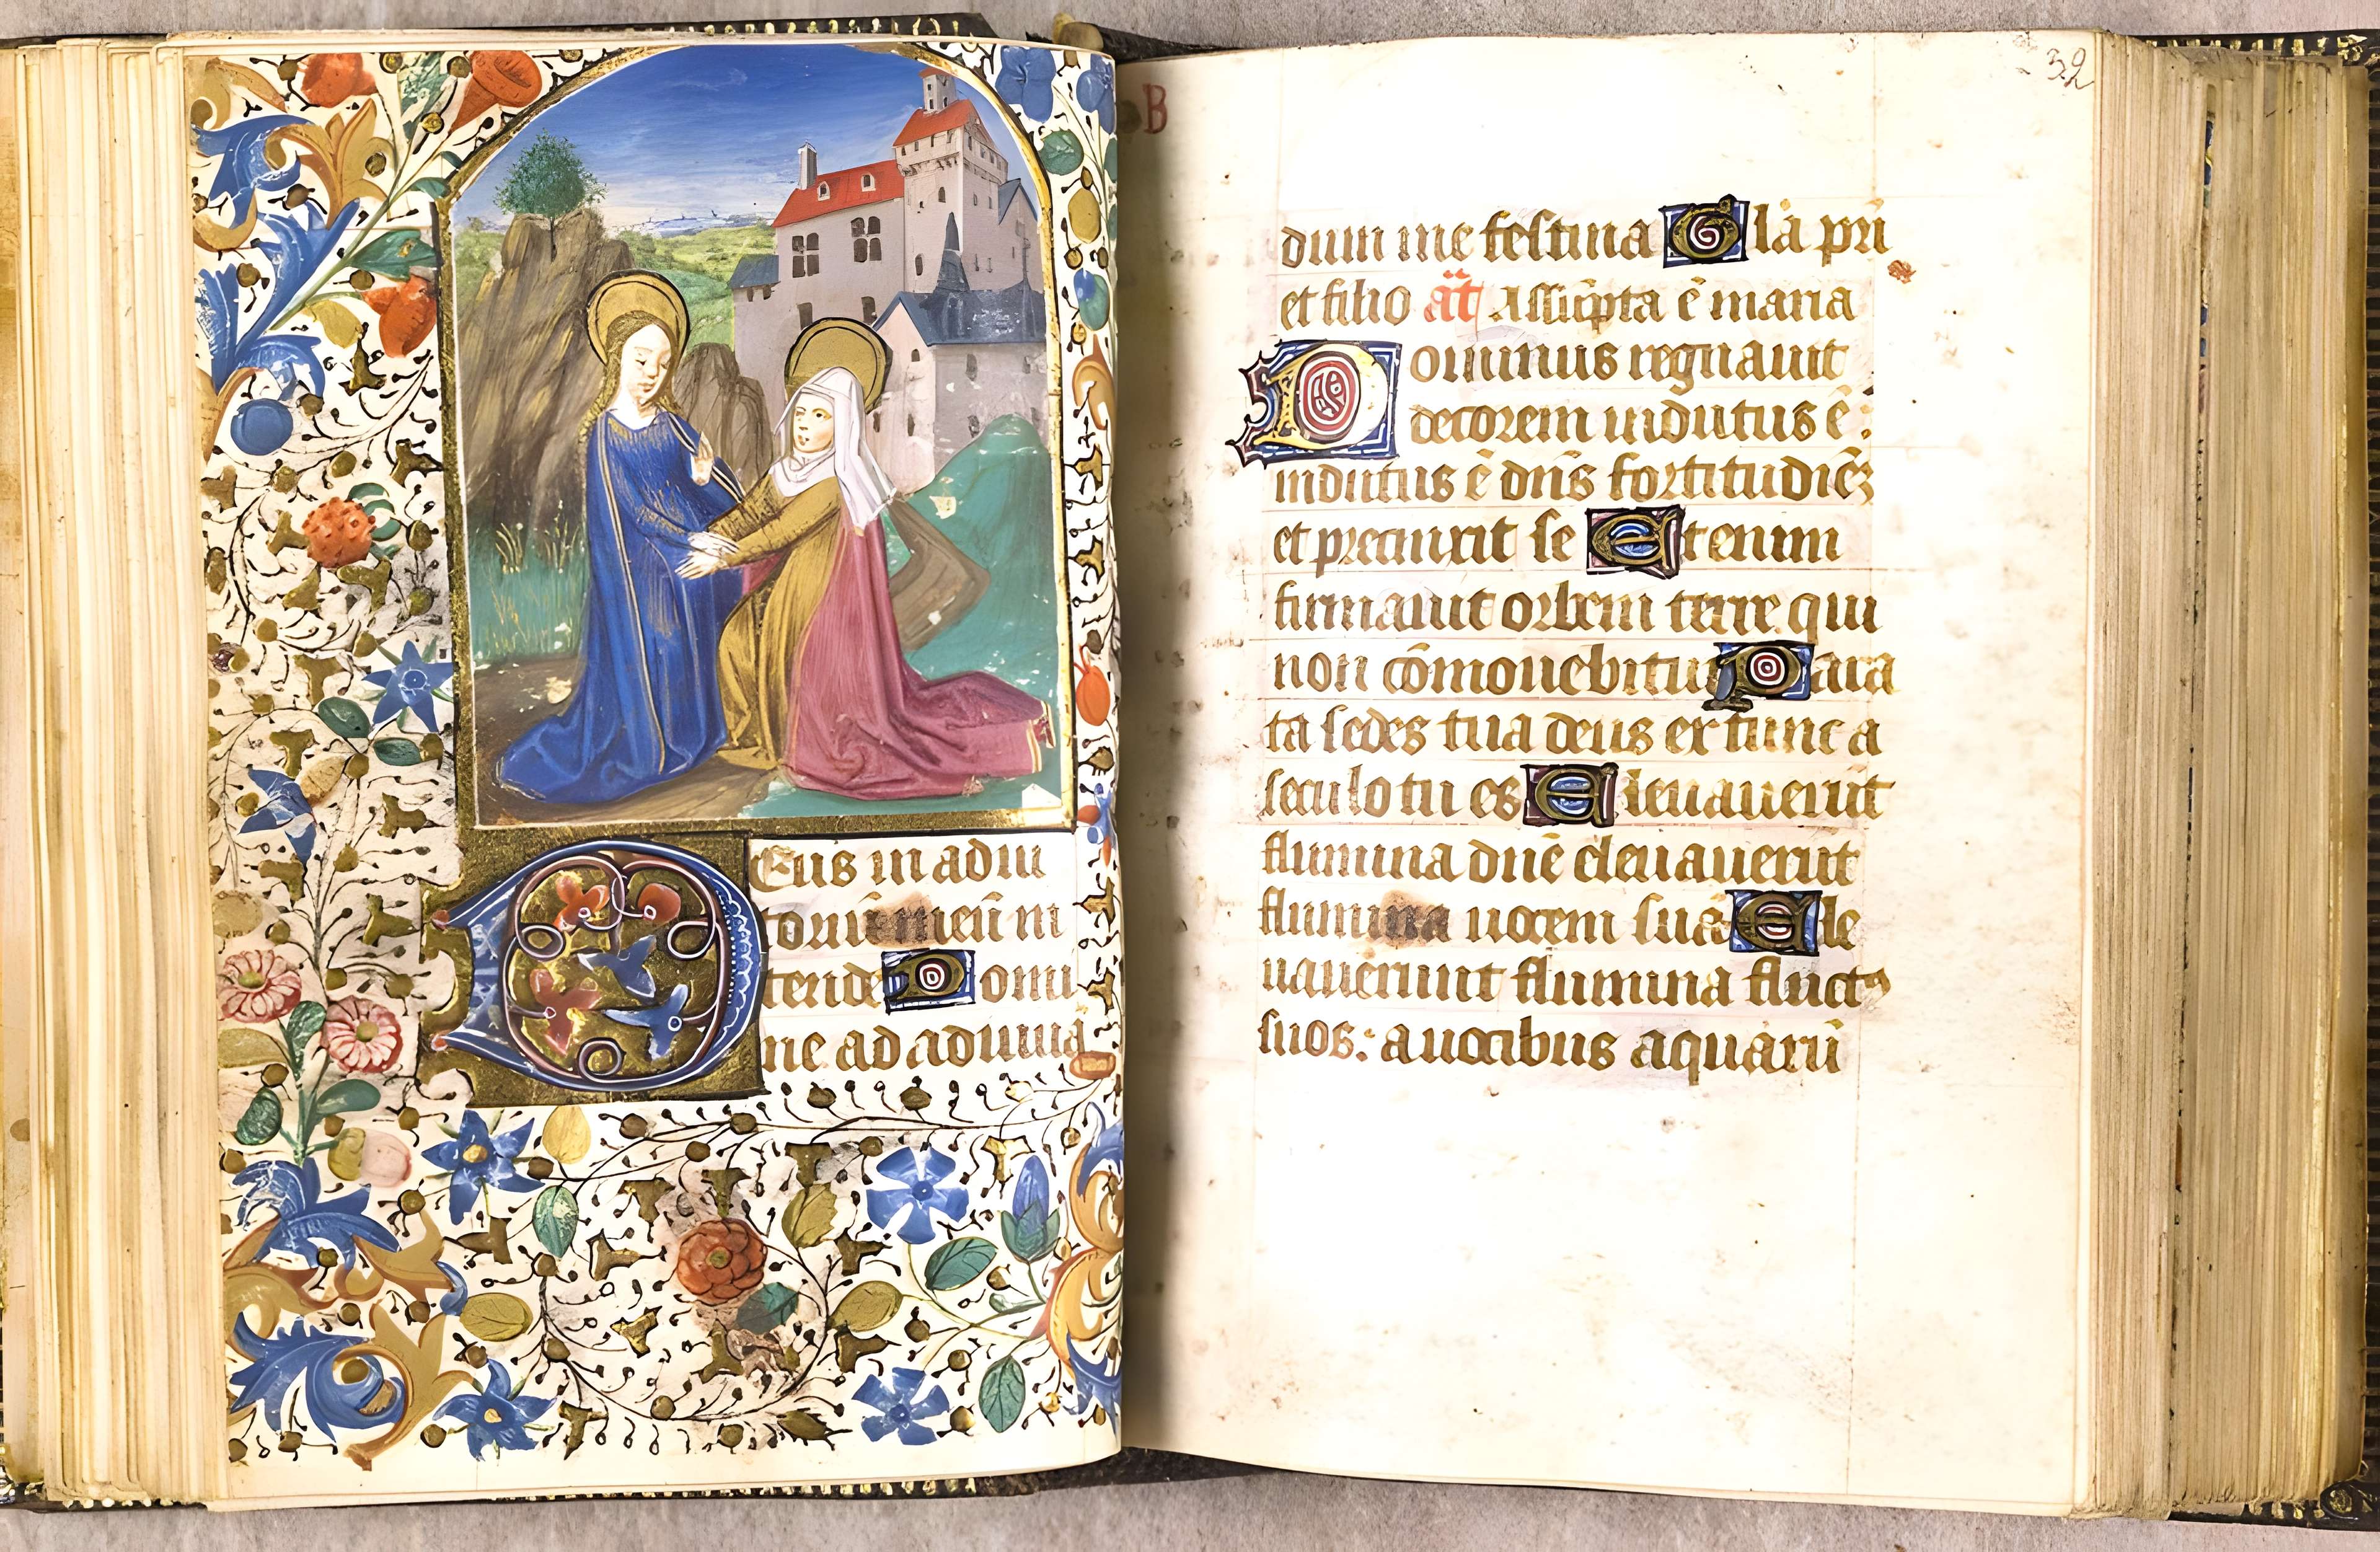 Deus in adiu
toriū meū in
tende Domi
ne ad adiuuā
B
32
dum me festina Gla pri
et filio añ Assūpta ē maria
Dominus regnauit
decorem indutus ē:
indutus ē dn̄s fortitudiēꝫ
et precinxit se Etenim
firmauit orbem terre qui
non cōmouebitur Para
ta sedes tua deus ex tunc a
seculo tu es Eleuauerūt
flumina dn̄e eleuauerūt
flumina uocem suā Ele
uauerunt flumina fluctꝰ
suos: a uocibus aquarū